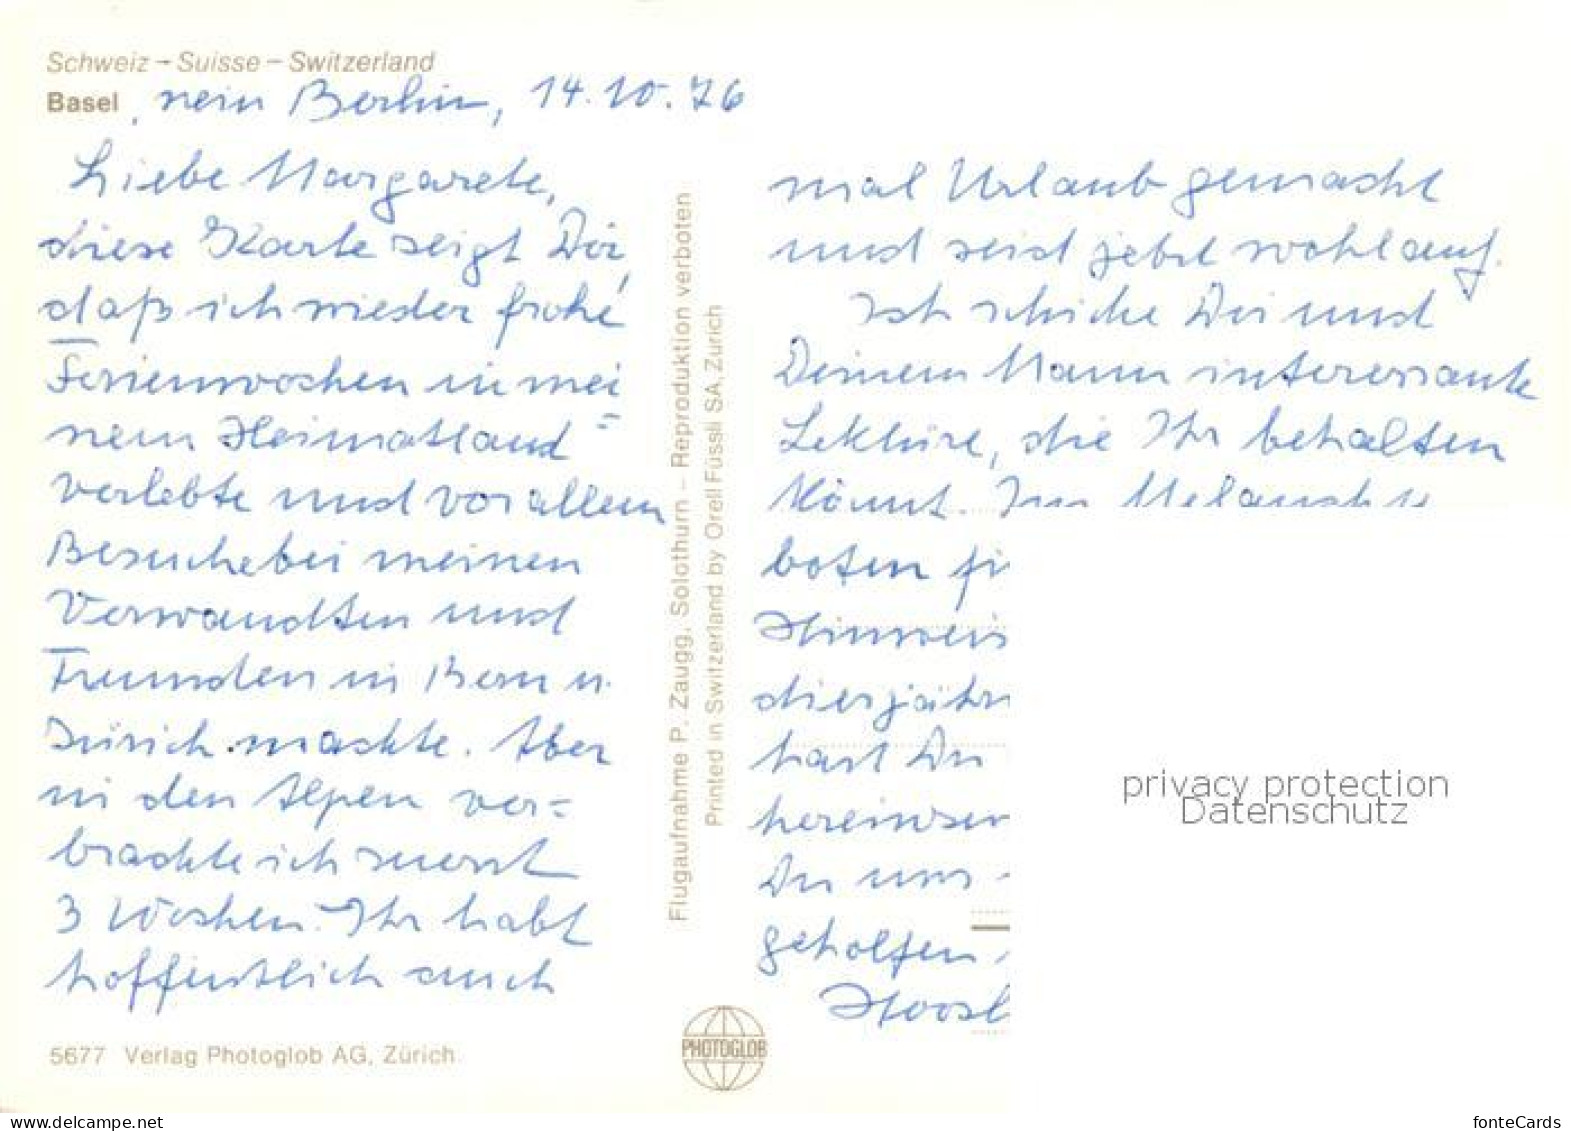 Schweiz – Suisse – Switzerland
Basel, nein Berlin, 14.10.76
Liebe Margarete,
diese Karte zeigt Dir,
daß ich wieder frohe
Ferienwochen in mei=
nem Heimatland
verlebte und vor allem
Besuche bei meinen
Verwandten und
Freunden in Bern u.
Zürich machte. Aber
in den Alpen ver=
brachte ich zuerst
3 Wochen. Ihr habt
hoffentlich auch
5677 Verlag Photoglob AG, Zürich
Flugaufnahme P. Zaugg, Solothurn – Reproduktion verboten
Printed in Switzerland by Orell Füssli SA, Zürich
PHOTOGLOB
mal Urlaub gemacht
und seid jetzt wohlauf.
Ich schicke Dir und
Deinem Mann interessante
Lektüre, die Ihr behalten
könnt. Im
boten
Hinweis
diesjähr
hast Du
hereinser
Du uns
geholfen,
privacy protection
Datenschutz
fonteCards